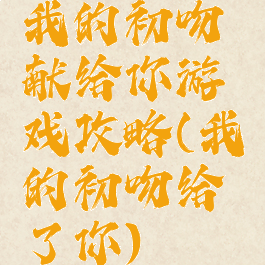 我的初吻
献给你游
戏攻略(我
的初吻给
了你)